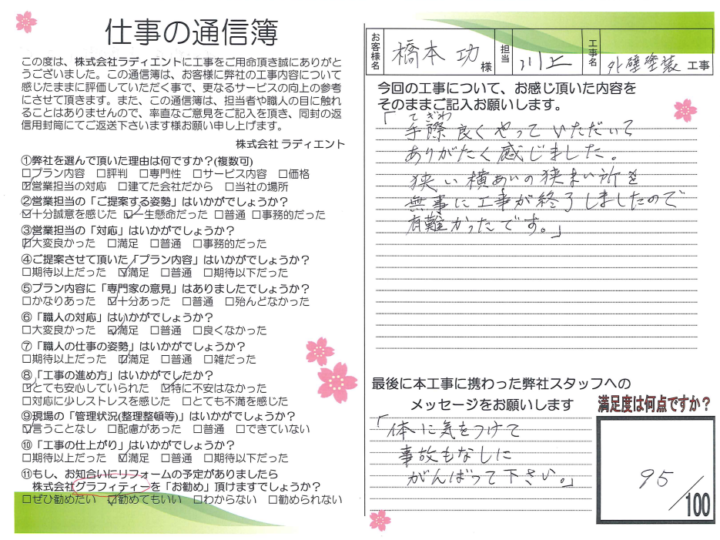 仕事の通信簿
この度は、株式会社ラディエントに工事をご用命頂き誠にありがと
うございました。この通信簿は、お客様に弊社の工事内容について
感じたままに評価していただく事で、更なるサービスの向上の参考
にさせて頂きます。また、この通信簿は、担当者や職人の目に触れ
ることはありませんので、率直なご意見をご記入を頂き、同封の返
信用封筒にてご返送下さいます様お願い申し上げます。
株式会社 ラディエント
①弊社を選んで頂いた理由は何ですか?(複数可)
□プラン内容 □評判 □専門性 □サービス内容 □価格
☑営業担当の対応 □建てた会社だから □当社の場所
②営業担当の「ご提案する姿勢」はいかがでしょうか?
☑十分誠意を感じた ☑一生懸命だった □普通 □事務的だった
③営業担当の「対応」はいかがでしょうか?
☑大変良かった □満足 □普通 □事務的だった
④ご提案させて頂いた「プラン内容」はいかがでしょうか?
□期待以上だった ☑満足 □普通 □期待以下だった
⑤プラン内容に「専門家の意見」はありましたでしょうか?
□かなりあった ☑十分あった □普通 □殆んどなかった
⑥「職人の対応」はいかがでしょうか?
□大変良かった ☑満足 □普通 □良くなかった
⑦「職人の仕事の姿勢」はいかがでしょうか?
□期待以上だった ☑満足 □普通 □雑だった
⑧「工事の進め方」はいかがでしたか?
☑とても安心していられた ☑特に不安はなかった
□対応に少しストレスを感じた □とても不満を感じた
⑨現場の「管理状況(整理整頓等)」はいかがでしょうか?
☑言うことなし □配慮があった □普通 □できていない
⑩「工事の仕上がり」はいかがでしょうか?
□期待以上だった ☑満足 □普通 □期待以下だった
⑪もし、お知合いにリフォームの予定がありましたら
株式会社グラフィティーを「お勧め」頂けますでしょうか?
□ぜひ勧めたい ☑勧めてもいい □わからない □勧められない
お客様名 橋本 功 様 担当 川上 工事名 外壁塗装 工事
今回の工事について、お感じ頂いた内容を
そのままご記入お願いします。
てぎわ
「手際良くやっていただいて
ありがたく感じました。
狭い横あいの狭まい所を
無事に工事が終了しましたので
有難かったです。」
最後に本工事に携わった弊社スタッフへの
メッセージをお願いします
「体に気をつけて
事故もなしに
がんばって下さい。」
満足度は何点ですか?
95
/100